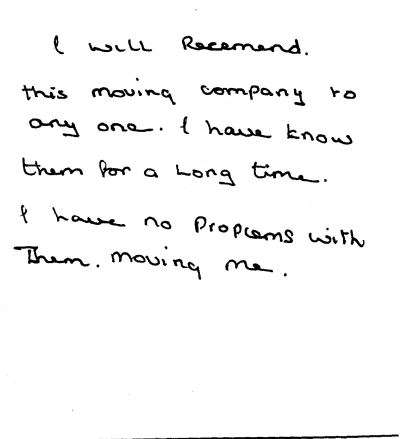 I will Recemend.
this moving company to
any one. I have know
them for a Long time.
I have no Proplems with
Them. moving me.